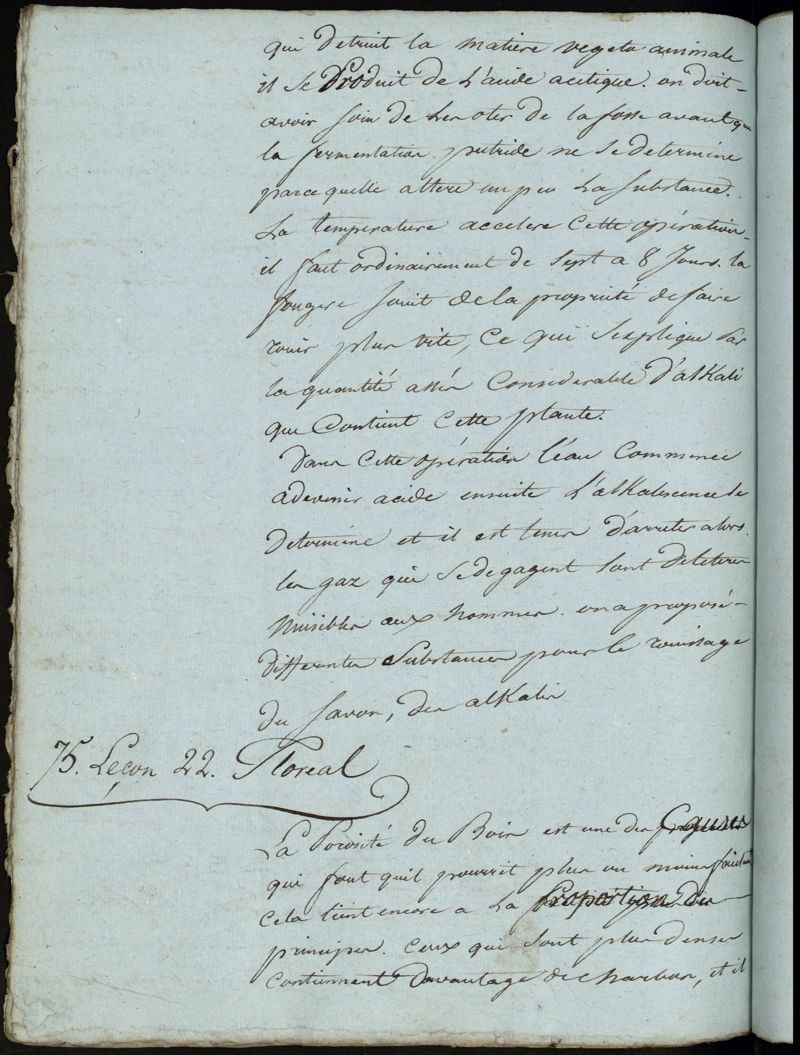 qui detruit la matiere vegeto animale
il se Produit de L'acide acetique. on doit
avoir soin de L'en oter de la fosse avant que
la fermentation putride ne se determine
parcequelle altere un peu La substance.
La temperature accelere Cette opération
il faut ordinairement de sept a 8 Jours. la
fougere jouit de la propriété de faire
rouir plus vite, Ce qui S'explique par
la quantité assés Considerable D'alKali
que Contient Cette plante.
Dans Cette opération l'eau Commence
a devenir acide ensuite L'alKalescence se
determine et il est tems d'arreter alors.
les gaz qui se degagent sont deleteres
Nuisibles aux hommes. on a proposé
differentes Substances pour le rouissage
du savon, des alKalis
75. Leçon 22. Floreal
La Porosité du Bois est une des Causes
qui font quil pourrit plus ou moins facilement
Cela tient encore a La Proportion des
principes. Ceux qui sont plus denses
Contiennent Davantage de charbon, et il